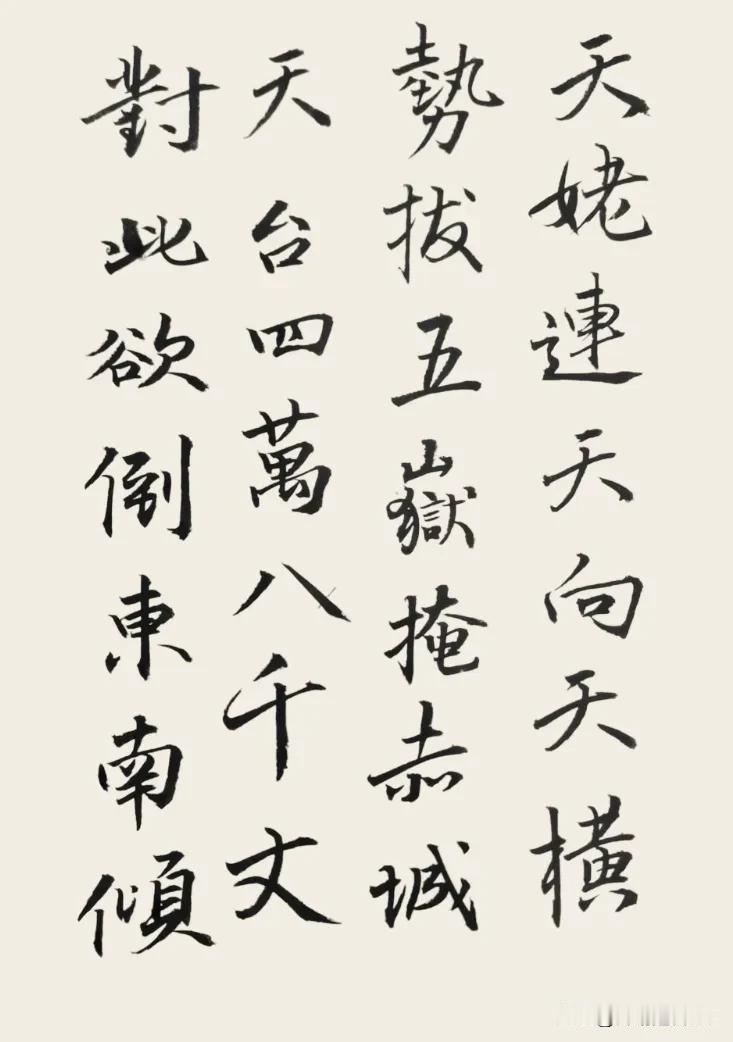 天姥連天向天橫
勢拔五嶽掩赤城
天台四萬八千丈
對此欲倒東南傾